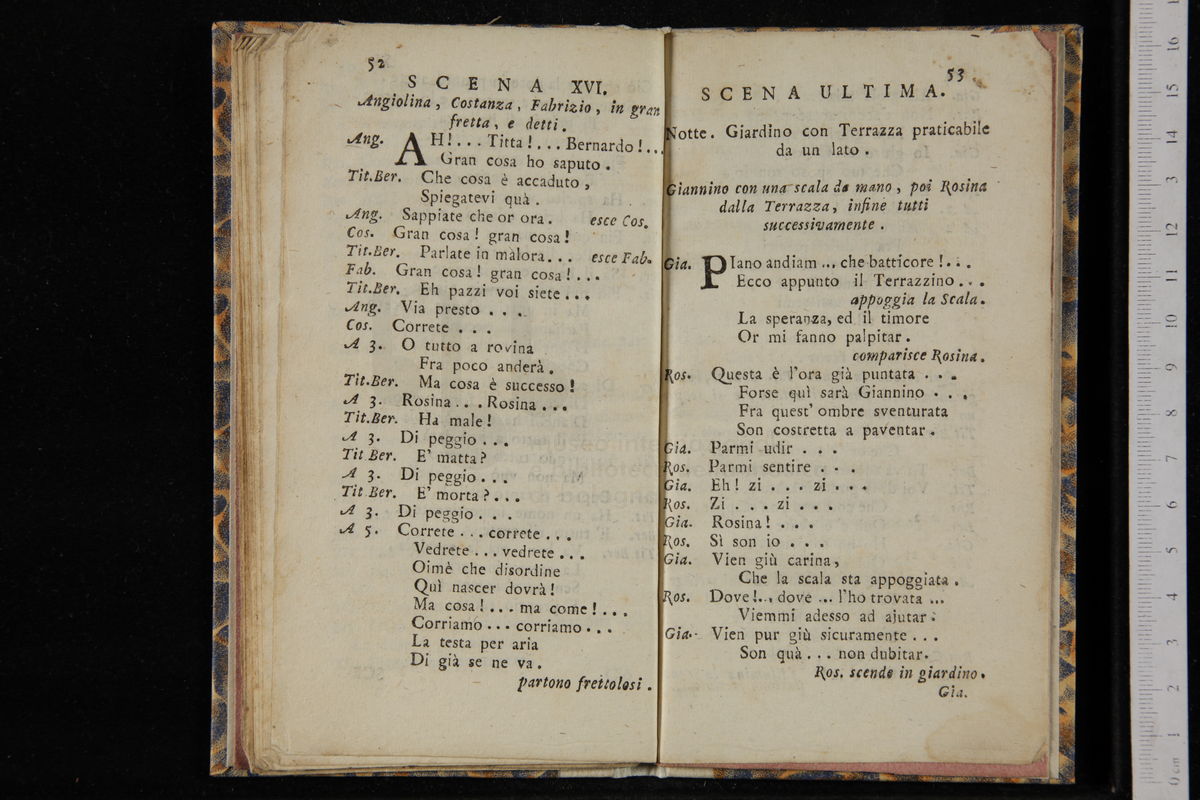 52
SCENA XVI.
Angiolina, Costanza, Fabrizio, in gran
fretta, e detti.
Ang. AH!... Titta!... Bernardo!...
Gran cosa ho saputo.
Tit.Ber. Che cosa è accaduto,
Spiegatevi quà.
Ang. Sappiate che or ora. esce Cos.
Cos. Gran cosa! gran cosa!
Tit.Ber. Parlate in malora... esce Fab.
Fab. Gran cosa! gran cosa!...
Tit.Ber. Eh pazzi voi siete...
Ang. Via presto ...
Cos. Correte ...
A 3. O tutto a rovina
Fra poco anderà.
Tit.Ber. Ma cosa è successo!
A 3. Rosina... Rosina...
Tit.Ber. Ha male!
A 3. Di peggio...
Tit Ber. E' matta?
A 3. Di peggio...
Tit Ber. E' morta?...
A 3. Di peggio...
A 5. Correte...correte...
Vedrete...vedrete...
Oimè che disordine
Quì nascer dovrà!
Ma cosa!...ma come!...
Corriamo...corriamo...
La testa per aria
Di già se ne va.
partono frettolosi.
53
SCENA ULTIMA.
Notte. Giardino con Terrazza praticabile
da un lato.
Giannino con una scala da mano, poi Rosina
dalla Terrazza, infine tutti
successivamente.
Gia. PIano andiam ... che batticore!...
Ecco appunto il Terrazzino...
appoggia la Scala.
La speranza, ed il timore
Or mi fanno palpitar.
comparisce Rosina.
Ros. Questa è l'ora già puntata ...
Forse quì sarà Giannino ...
Fra quest' ombre sventurata
Son costretta a paventar.
Gia. Parmi udir ...
Ros. Parmi sentire ...
Gia. Eh! zi ... zi ...
Ros. Zi ... zi ...
Gia. Rosina! ...
Ros. Sì son io ...
Gia. Vien giù carina,
Che la scala sta appoggiata.
Ros. Dove!.., dove ... l'ho trovata ...
Viemmi adesso ad ajutar.
Gia. Vien pur giù sicuramente ...
Son quà... non dubitar.
Ros. scende in giardino.
Gia.
0 cm 1 2 3 4 5 6 7 8 9 10 11 12 13 14 15 16